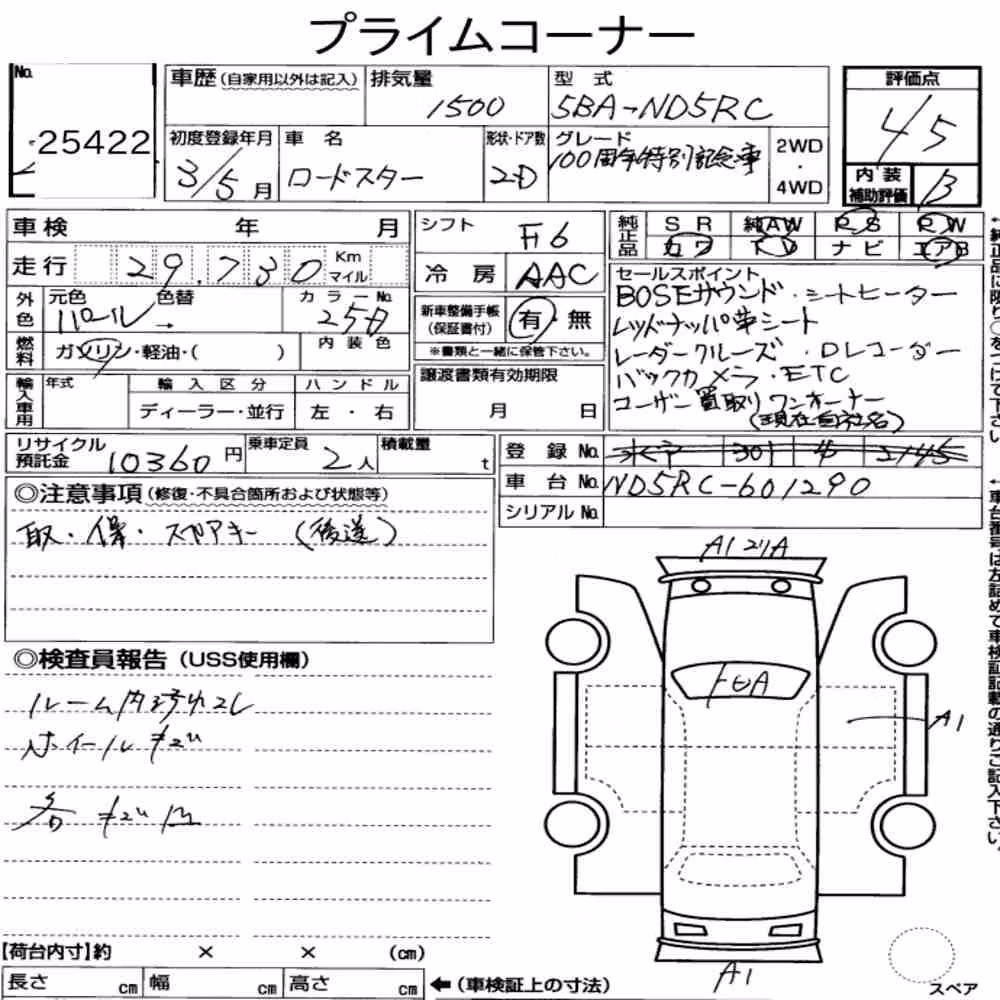 プライムコーナー
No. 25422
車歴(自家用以外は記入) 排気量 1500 型式 5BA-ND5RC 評価点 4.5
初度登録年月 3/5月 車名 ロードスター 形状・ドア数 2-D グレード 100周年特別記念車 2WD・4WD
内装補助評価 B
車検 年 月 シフト F6 純正品 SR 純AW PS PW
カワ TV ナビ エアB
走行 29.730 Kmマイル 冷房 AAC
セールスポイント
BOSEサウンド・シートヒーター
外色 元色 パール 色替 → カラーNo. 25D 新車整備手帳(保証書付) 有・無
レッドナッパ革シート
燃料 ガソリン・軽油・( ) 内装色 ※書類と一緒に保管下さい。
レーダークルーズ・Dレコーダー
輸入車用 年式 輸入区分 ハンドル 譲渡書類有効期限
バックカメラ・ETC
ディーラー・並行 左・右 月 日
ユーザー買取り ワンオーナー
(現在自社名)
リサイクル預託金 10360円 乗車定員 2人 積載量 t 登録No. 301
◎注意事項(修復・不具合箇所および状態等) 車台No. ND5RC-601290
取・保・スペアキー(後送) シリアルNo.
A1
◎検査員報告(USS使用欄)
ホイールキズ
各キズ凹
A1
【荷台内寸】約 × × (cm)
長さ cm 幅 cm 高さ cm ←(車検証上の寸法)
A1
スペア
↑車台番号は左詰めで車検証記載の通りご記入下さい。